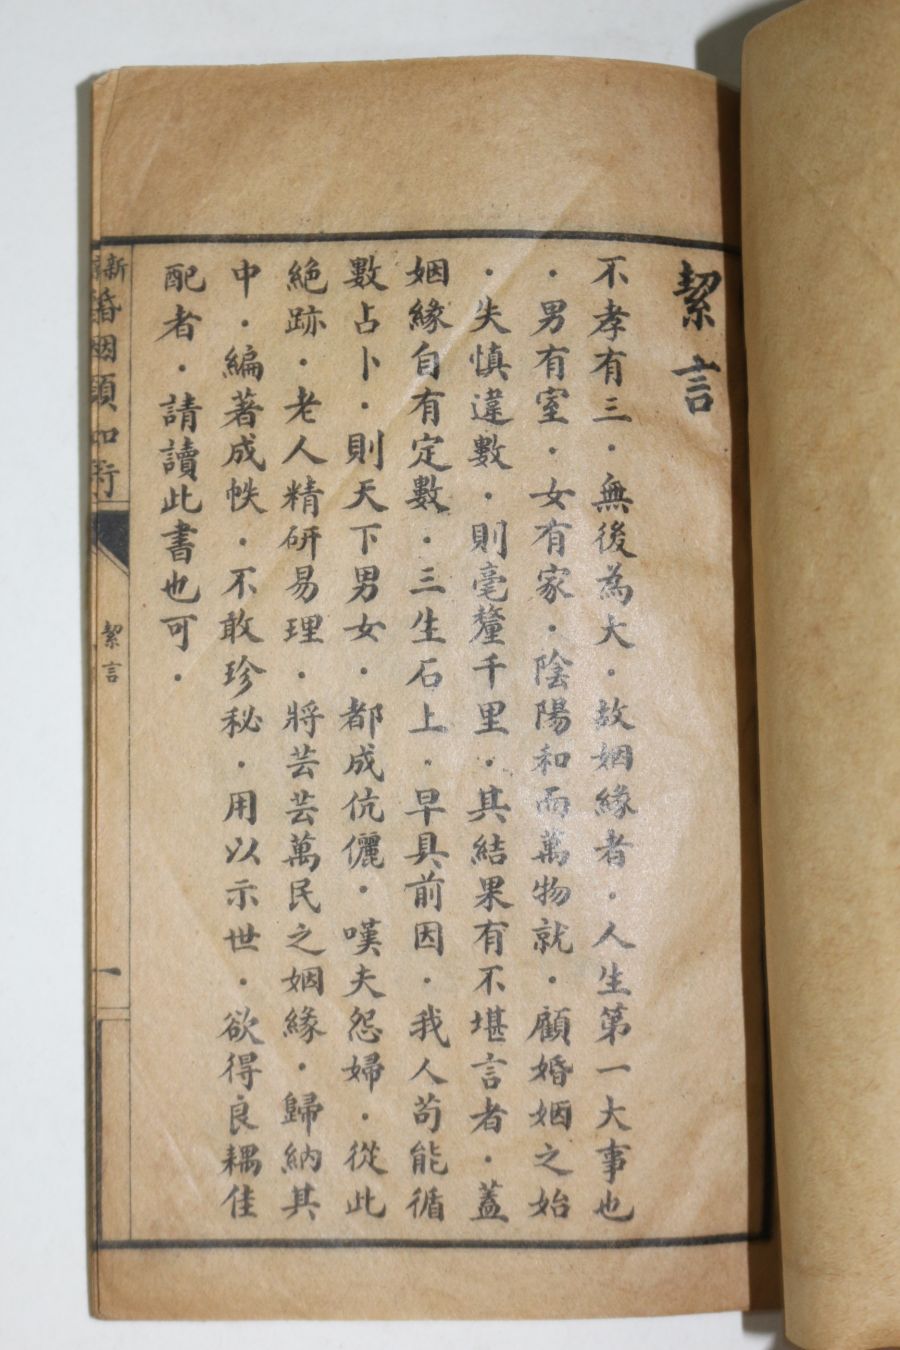 絜言
不孝有三．無後為大．故姻緣者．人生第一大事也
．男有室．女有家．陰陽和而萬物就．顧婚姻之始
．失慎違數．則毫釐千里．其結果有不堪言者．蓋
姻緣自有定數．三生石上．早具前因．我人苟能循
數占卜．則天下男女．都成伉儷．嘆夫怨婦．從此
絕跡．老人精研易理．將芸芸萬民之姻緣．歸納其
中．編著成帙．不敢珍秘．用以示世．欲得良耦佳
配者．請讀此書也可．
新
婚姻
絜言
一